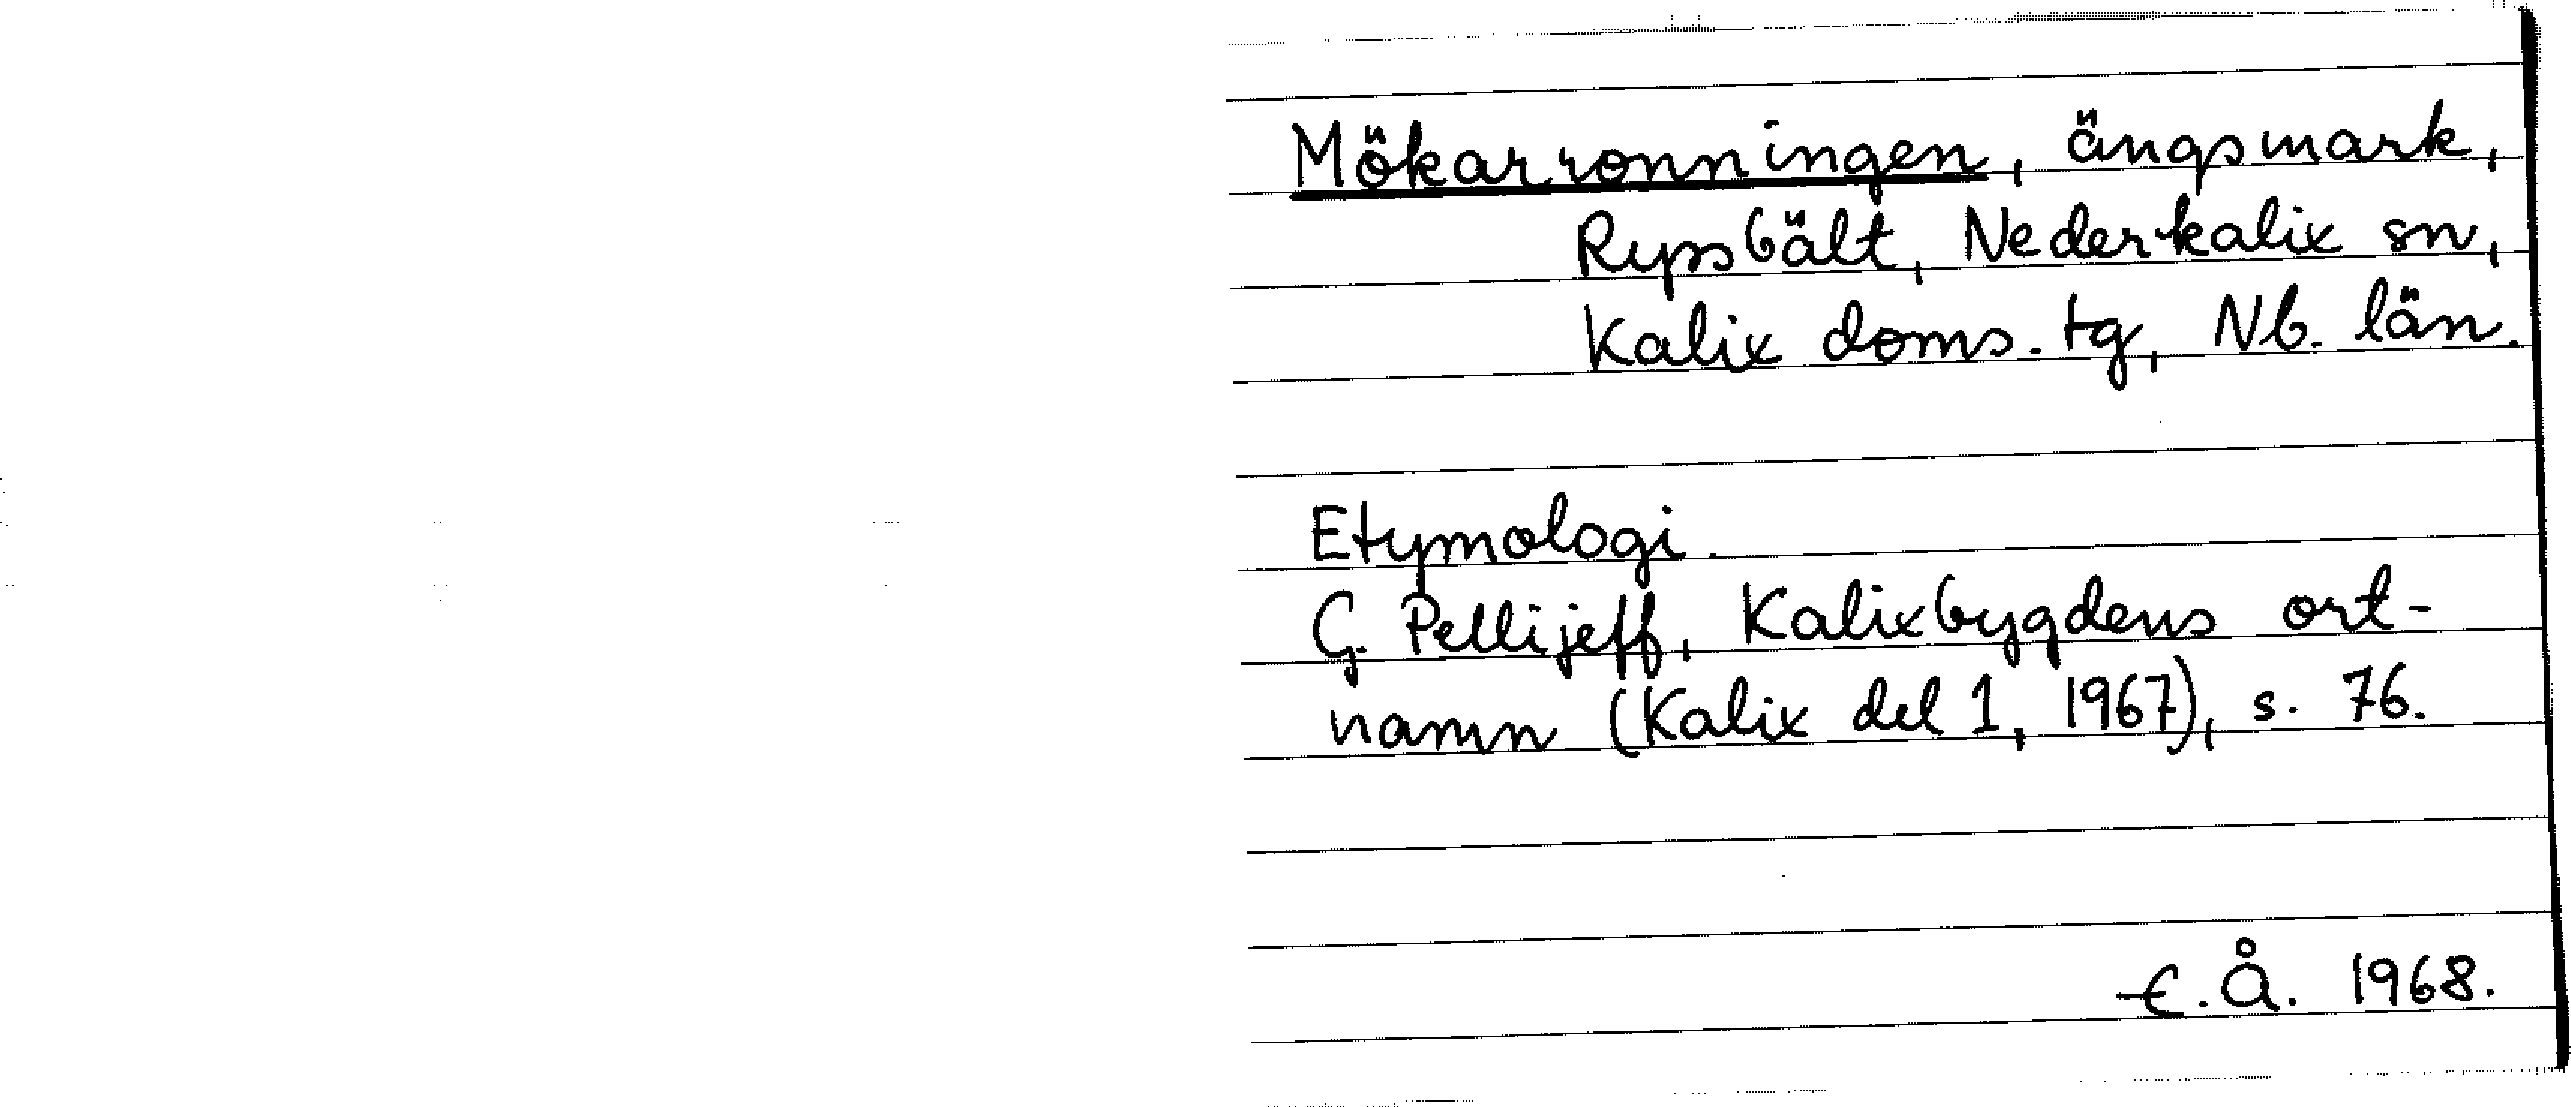 Mökarronningen, ängsmark,
Rypsbält, Nederkalix sn,
Kalix doms. tg, Nb. län.
Etymologi.
G. Pellijeff, Kalixbygdens ort-
namn (Kalix del 1, 1967), s. 76.
E. Å. 1968.